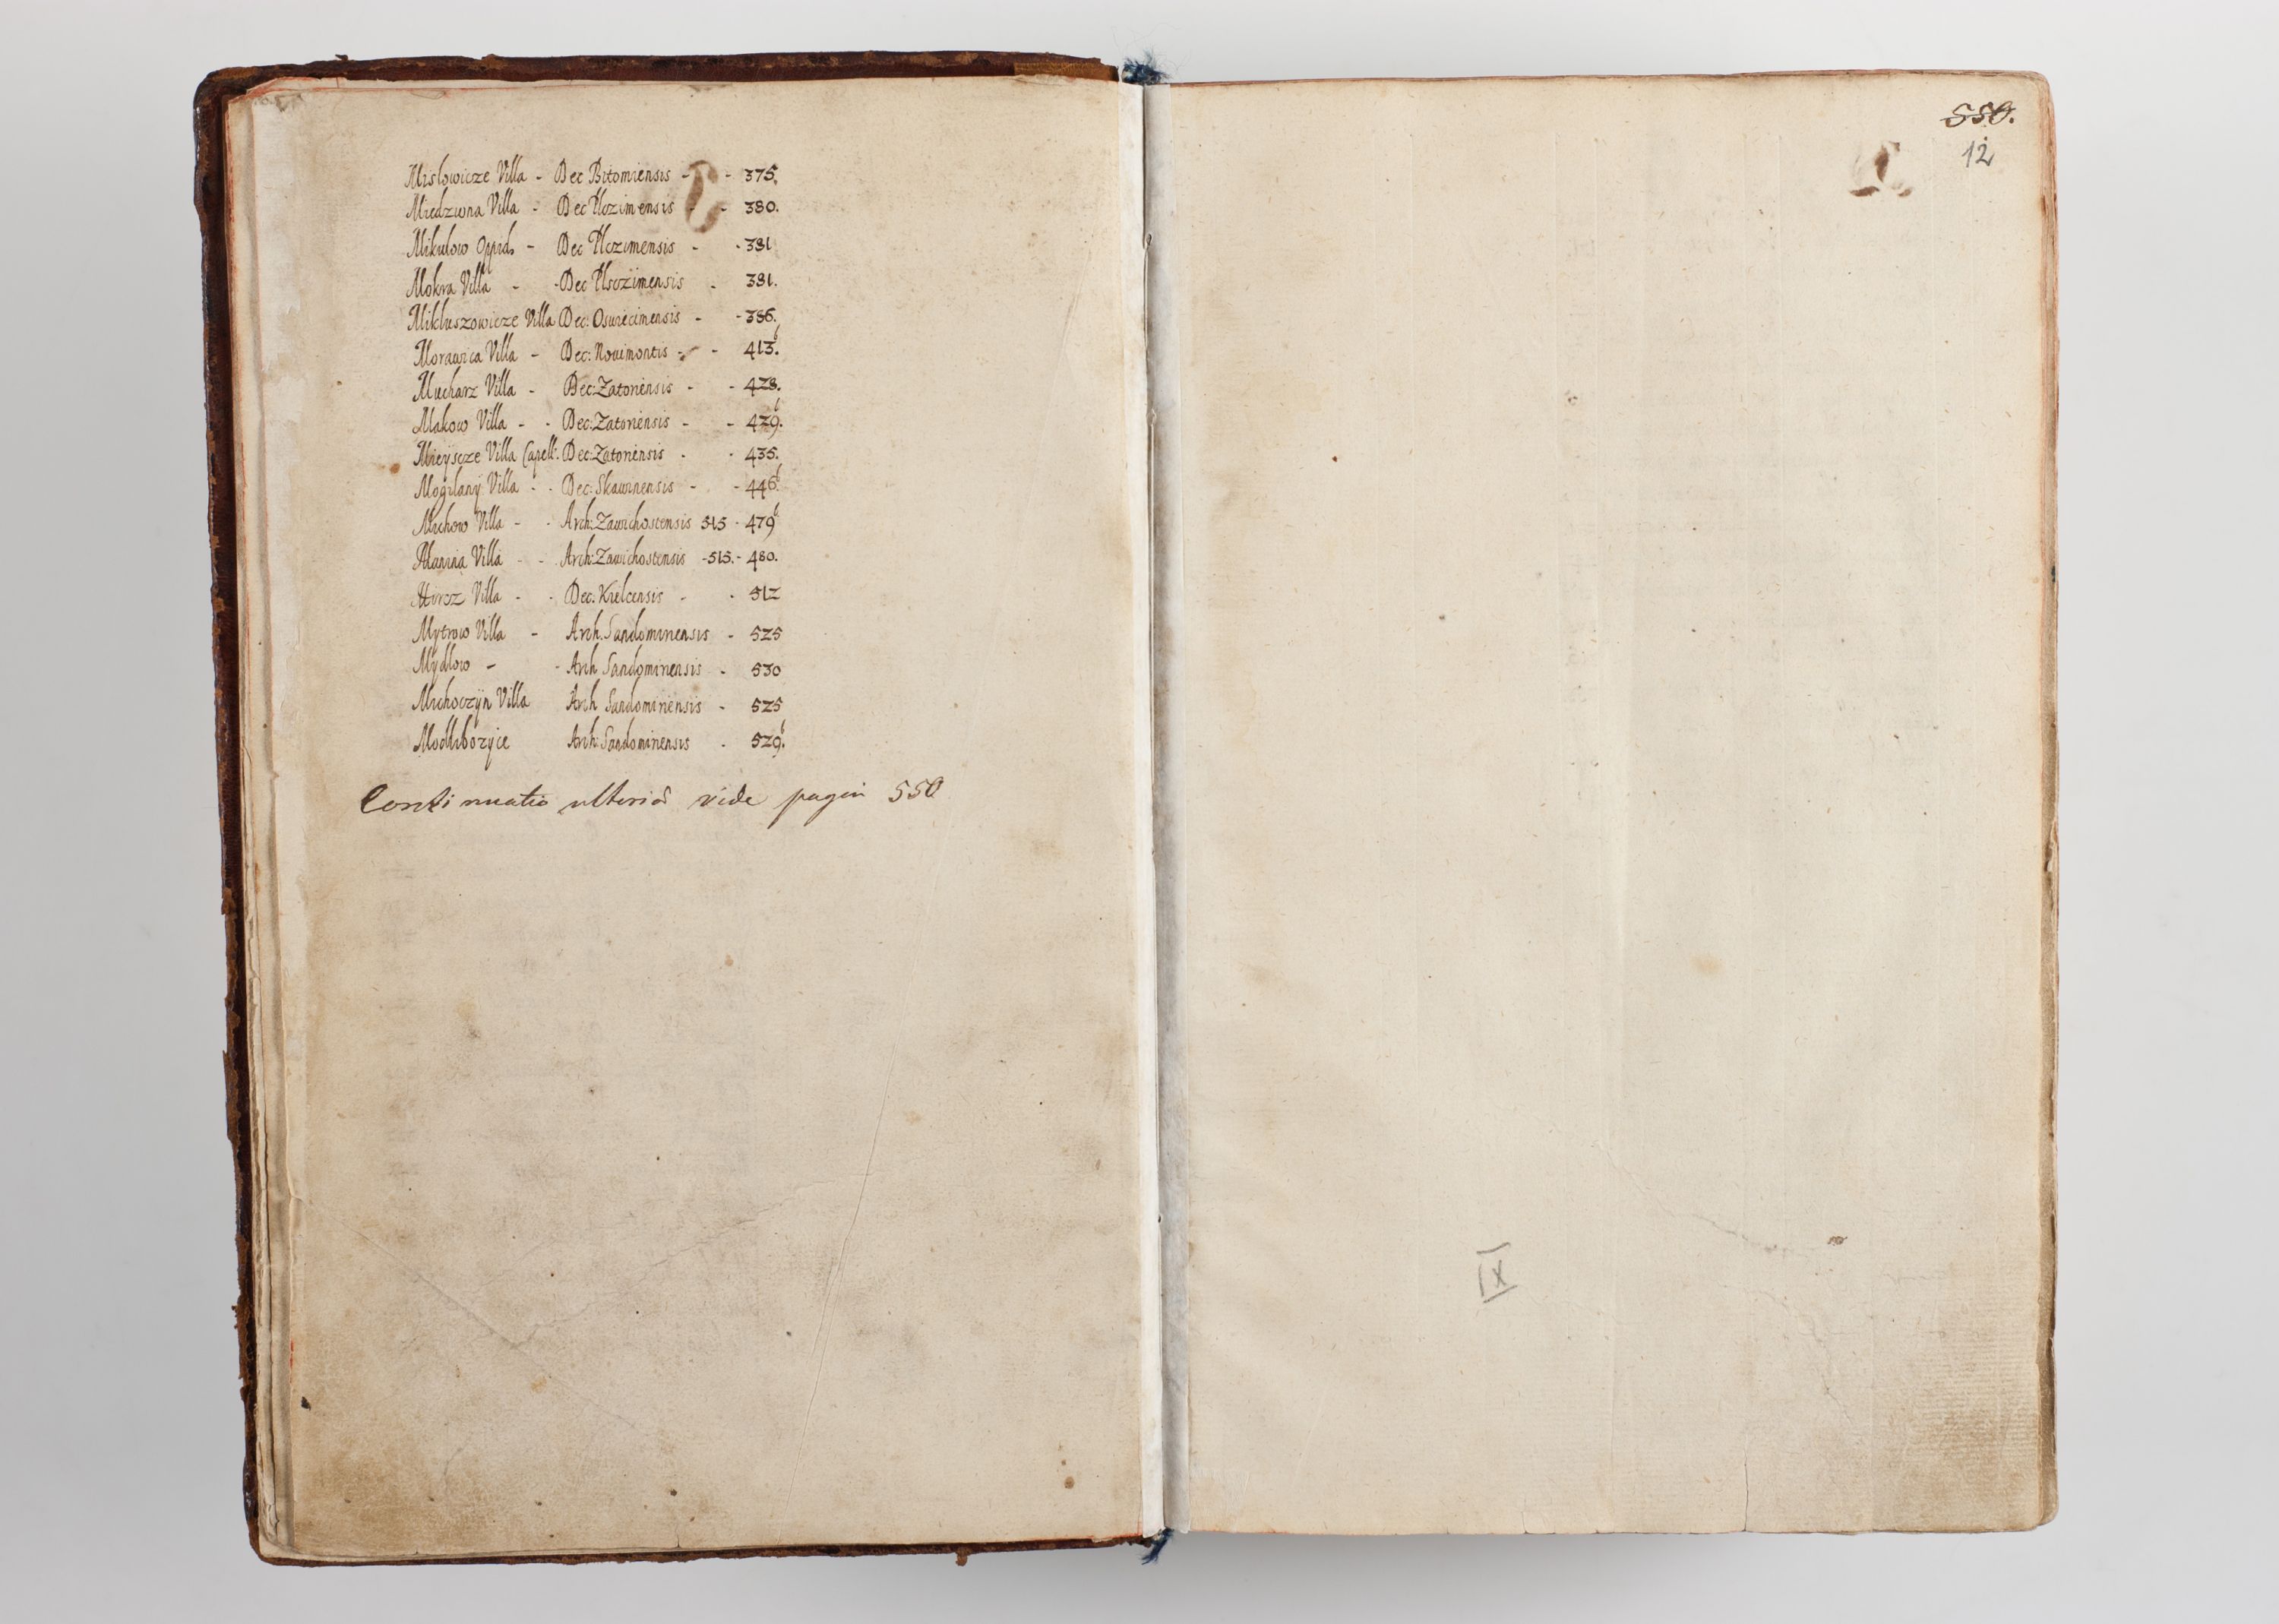 Mislowicze Villa - Dec Bitomiensis - - 375.
Miedzwna Villa - Dec Plczimensis - - 380.
Mikulow Opid. - Dec Plczimensis - - 381
Mokra Villa - - Dec Plsczimensis - 381.
Mikluszowicze Villa Dec: Oswiecimensis - - 386.
Morawica Villa - Dec: Novimontis - - 413.b
Mucharz Villa - Dec: Zatoriensis - - 428.
Makow Villa - - Dec: Zatoriensis - - 429.b
Mieyscze Villa Capell. Dec: Zatoriensis - - 435.
Mogilany Villa - - Dec: Skawinensis - - 446.b
Michow Villa - - Arch: Zawichostensis 515 - 479b
Manina Villa - - Arch: Zawichostensis - 515. - 480.
Villa - - Dec. Kielcensis - - 512
Mytrow Villa - Arch. Sandomiriensis - 525
Mydlow - - Arch Sandomiriensis - 530
Michoczyn Villa Arch Sandomiriensis - 525
Modlibozyce Arch: Sandomiriensis - 529.b
Continuatio ulterior vide pagin 550
550.
12
IX